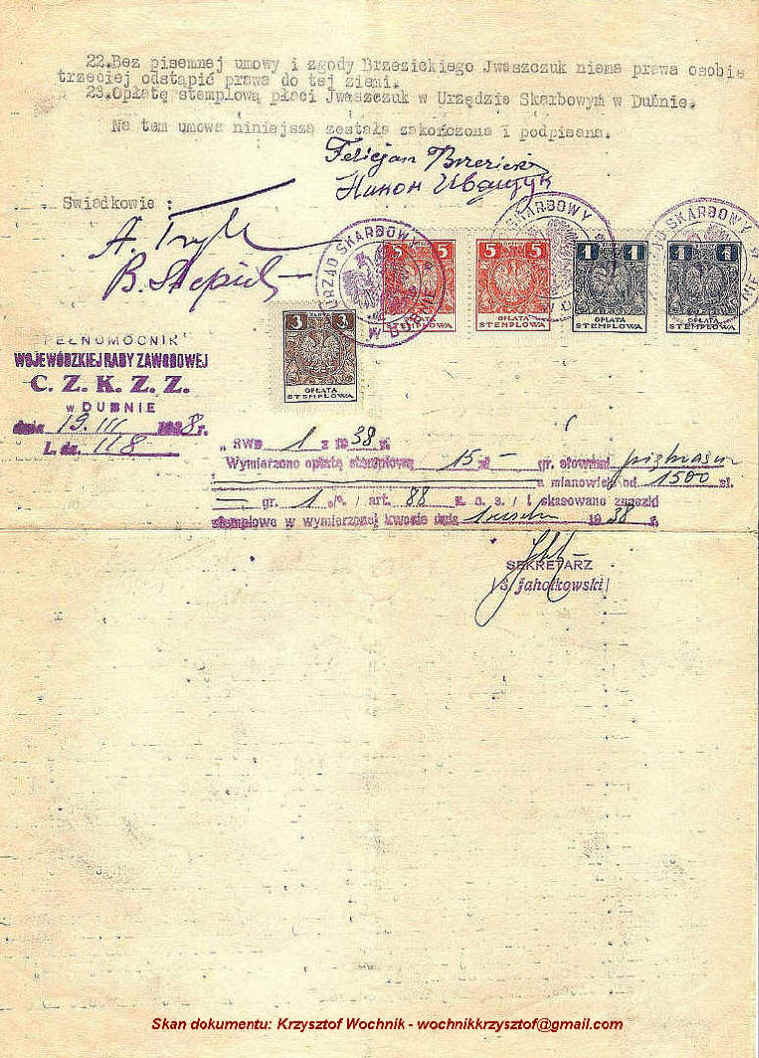 22.Bez pisemnej umowy i zgody Brzezickiego Jwaszczuk niema prawa osobie
trzeciej odstąpić prawa do tej ziemi.
23.Opłatę stemplową płaci Jwaszczuk w Urzędzie Skarbowym w Dubnie.
Na tem umowa niniejsza została zakończona i podpisana.
Felicjan Brzezicki
Świadkowie :
URZĄD SKARBOWY
W DUBNIE
5 5
OPŁATA
STEMPLOWA
5 5
OPŁATA
STEMPLOWA
SKARBOWY
1 1
OPŁATA
STEMPLOWA
SKARBOWY
1 1
OPŁATA
STEMPLOWA
3 3
OPŁATA
STEMPLOWA
PEŁNOMOCNIK
WOJEWÓDZKIEJ RADY ZAWODOWEJ
C. Z. K. Z. Z.
w DUBNIE
dnia 19.III 1938 r.
L. dz. 118
„ RWD 1 z 1938 r.
Wymierzono opłatę stemplową 15 zł — gr. słownie
a mianowicie od 1500 zł.
— gr. 1 % / art. 88 / i skasowano znaczki
stemplowe w wymierzonej kwocie dnia 1938 r.
SEKRETARZ
/S. Jahołkowski/
Skan dokumentu: Krzysztof Wochnik - wochnikkrzysztof@gmail.com